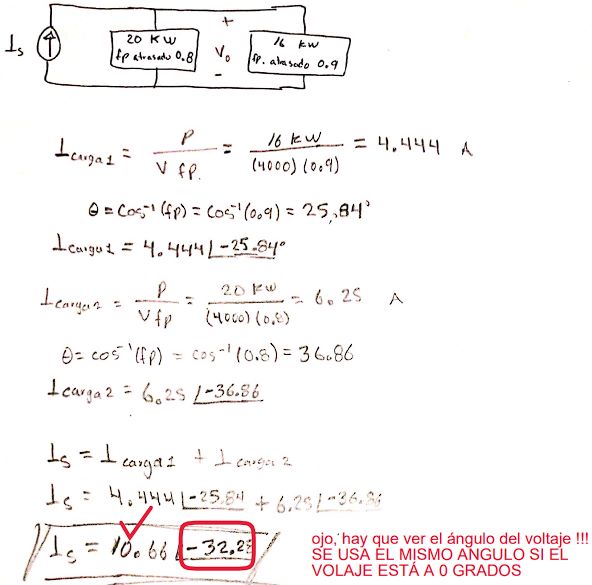 Is
20 KW
fp atrasado 0.8
+
Vo
−
16 KW
fp. atrasado 0.9
Icarga1 = P / V fp. = 16 KW / (4000)(0.9) = 4.444 A
θ = cos⁻¹(fp) = cos⁻¹(0.9) = 25.84°
Icarga1 = 4.444∠-25.84°
Icarga2 = P / V fp = 20 KW / (4000)(0.8) = 6.25 A
θ = cos⁻¹(fp) = cos⁻¹(0.8) = 36.86
Icarga2 = 6.25∠-36.86
Is = Icarga1 + Icarga2
Is = 4.444∠-25.84 + 6.25∠-36.86
Is = 10.66∠-32.28
ojo, hay que ver el ángulo del voltaje !!!
SE USA EL MISMO ANGULO SI EL
VOLAJE ESTÁ A 0 GRADOS